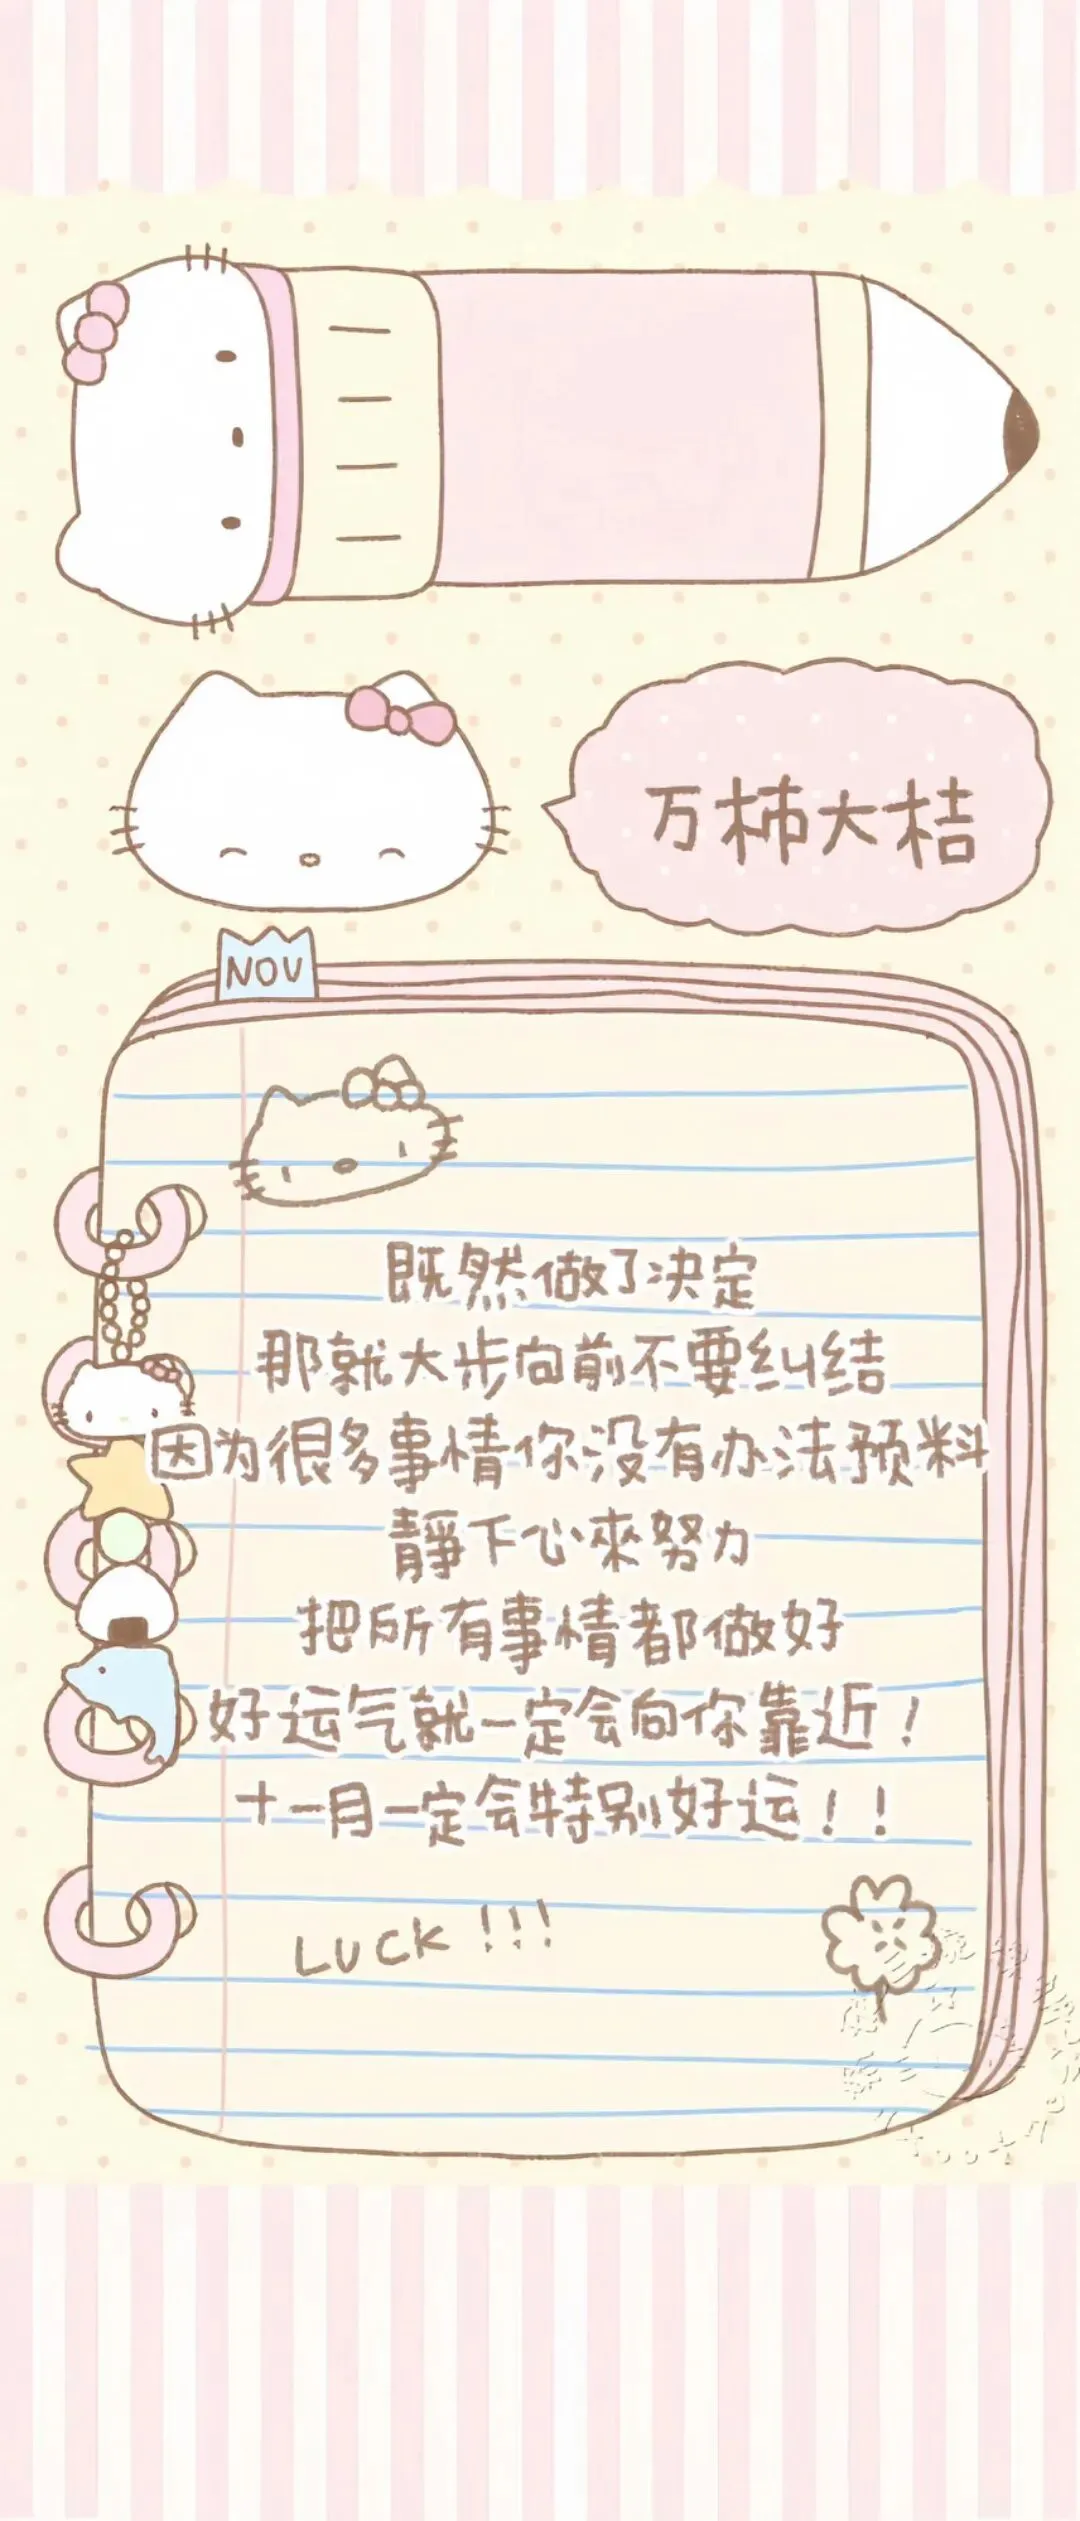 万柿大桔
NOV
既然做了决定
那就大步向前不要纠结
因为很多事情你没有办法预料
靜下心來努力
把所有事情都做好
好运气就一定会向你靠近！
十一月一定会特别好运！！
LUCK!!!